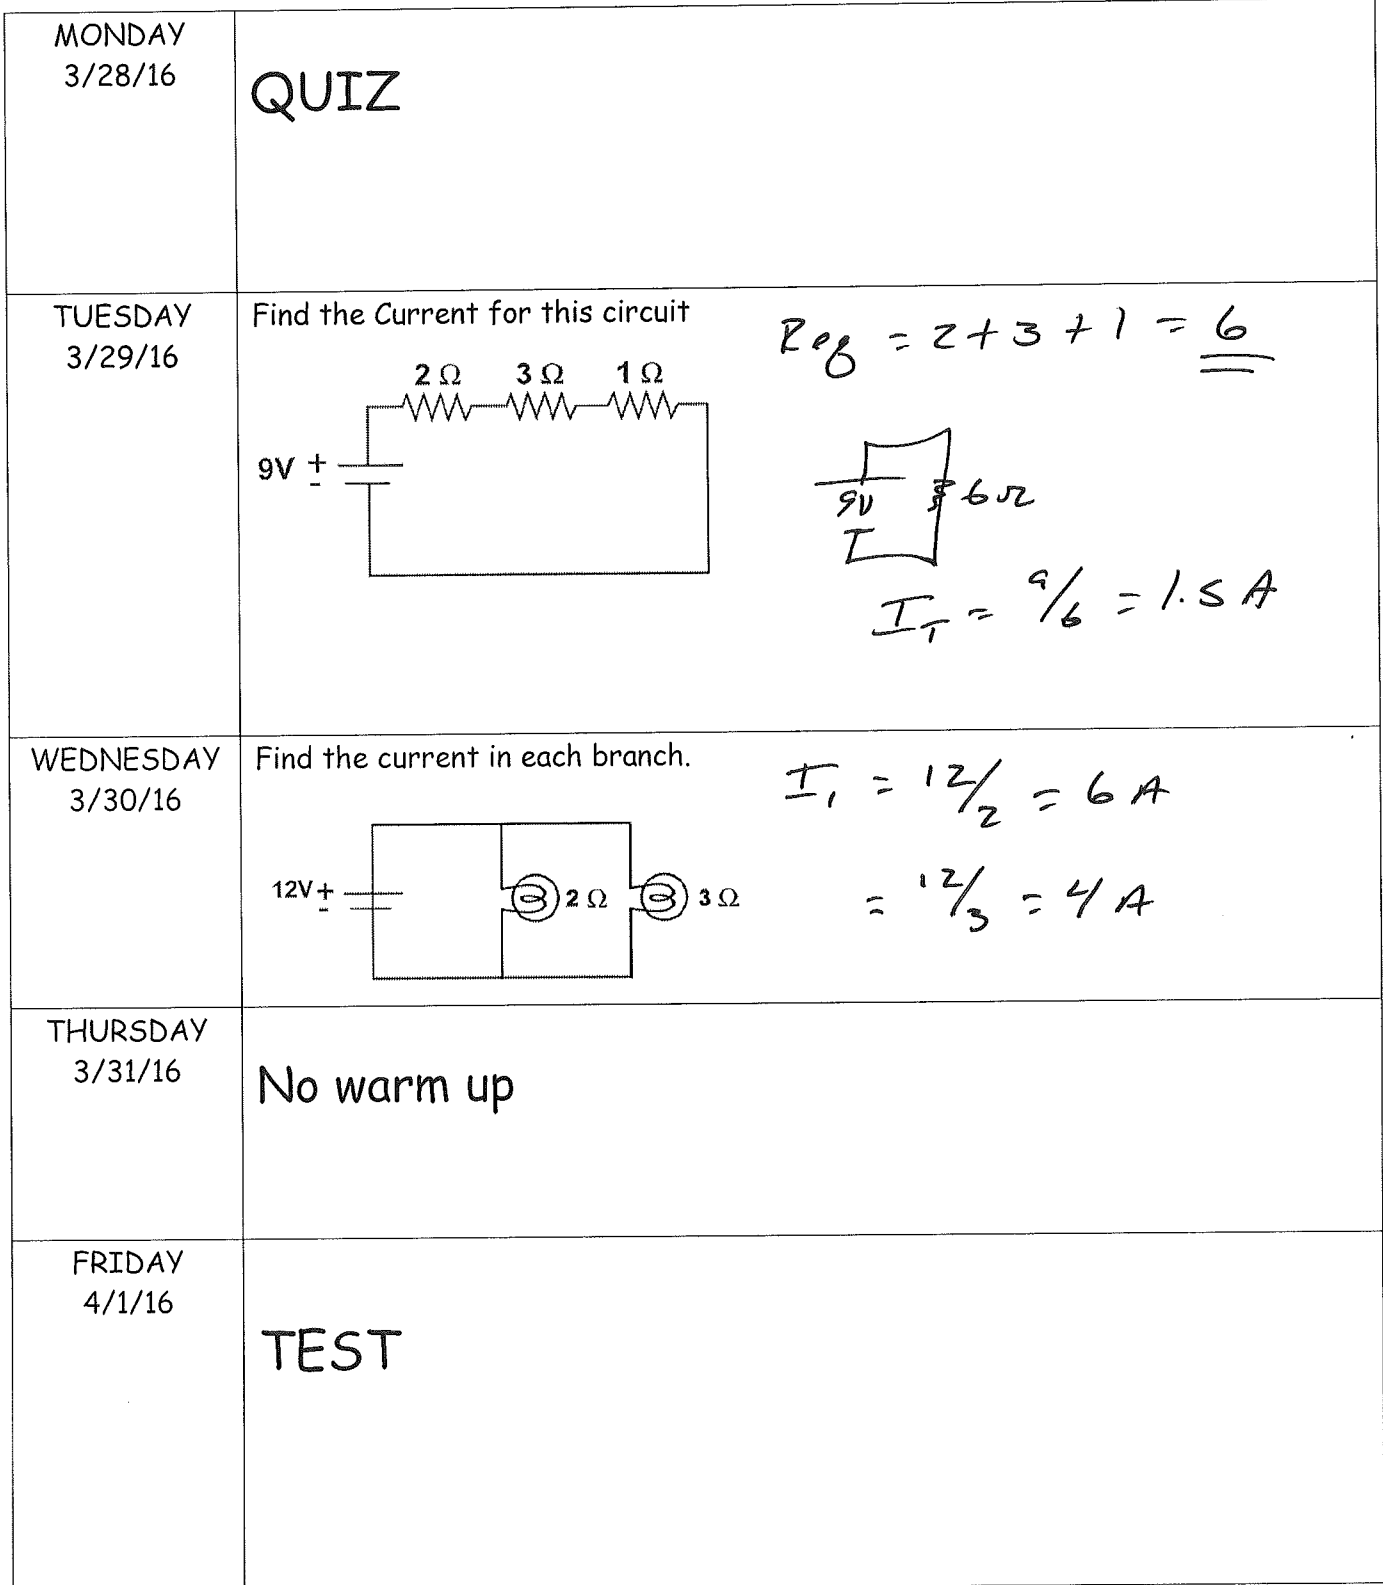 MONDAY
3/28/16
QUIZ
TUESDAY
3/29/16
Find the Current for this circuit
2 Ω 3 Ω 1 Ω
9V + -
Req = 2+3+1 = 6
9V 6Ω
I_T = 9/6 = 1.5 A
WEDNESDAY
3/30/16
Find the current in each branch.
12V + -
2 Ω 3 Ω
I₁ = 12/2 = 6 A
= 12/3 = 4 A
THURSDAY
3/31/16
No warm up
FRIDAY
4/1/16
TEST